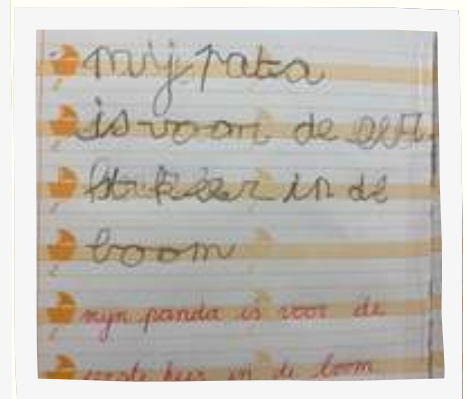 mij pata
is voor de eert
keer in de
boom
mijn panda is voor de
eerste keer in de boom